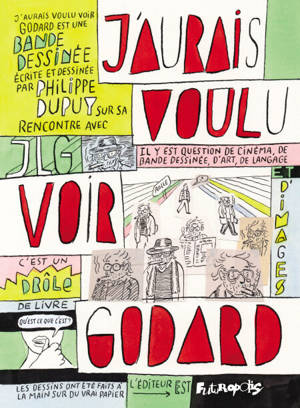 J'AURAIS VOULU VOIR
GODARD EST UNE
BANDE
DESSINÉE
ÉCRITE ET DESSINÉE
PAR PHILIPPE
DUPUY SUR SA
RENCONTRE AVEC
JLG
J'AURAIS
VOULU
IL Y EST QUESTION DE CINÉMA, DE
BANDE DESSINÉE, D'ART, DE LANGAGE
ET D'IMAGES
VOIR
ROLLE
C'EST UN
DRÔLE
DE LIVRE
QU'EST CE QUE C'EST?
GODARD
LES DESSINS ONT ÉTÉ FAITS À
LA MAIN SUR DU VRAI PAPIER
L'ÉDITEUR EST
Futuropolis